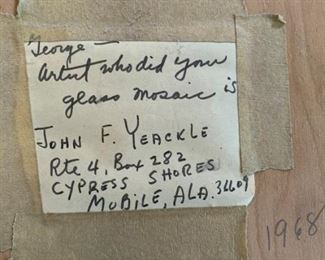 George —
Artist who did your
glass mosaic is
JOHN F. YEACKLE
Rte 4, Box 282
CYPRESS SHORES
MOBILE, ALA. 36609
1968